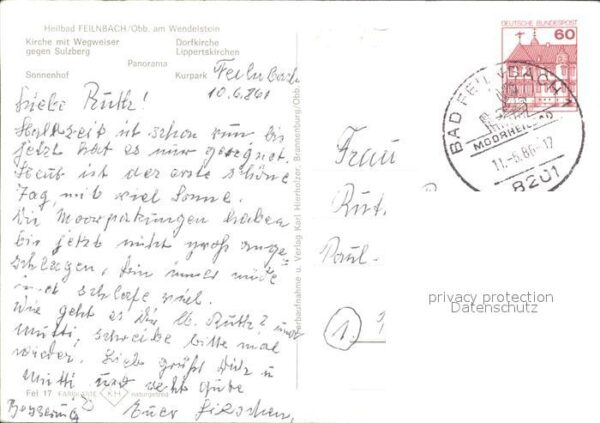 Heilbad FEILNBACH/Obb. am Wendelstein
Kirche mit Wegweiser
gegen Sulzberg
Dorfkirche
Lippertskirchen
Panorama
Sonnenhof
Kurpark
Feilnbach
10.6.86
Liebe Ruth!
Halbzeit ist schon nun bis
jetzt hat es nur geregnet.
Heut ist der erste schöne
Tag, mit viel Sonne.
Die Moorpakungen haben
bis jetzt nicht groß ange-
schlagen, bin immer müde
schlafe viel.
Wie geht es Dir lb. Ruth? und
Mutti, schreibe bitte mal
wieder. Lieb grüßt Dich u
Mutti und recht gute
Besserung
Euer
Fel 17
FARBKARTE KH naturgetreu
Farbaufnahme u. Verlag Karl Hierholzer, Brannenburg/Obb.
DEUTSCHE BUNDESPOST
60
BAD FEILNBACH 1
MOORHEILBAD
11.-6.86-17
8201
Frau
Rut
Paul
1
privacy protection
Datenschutz